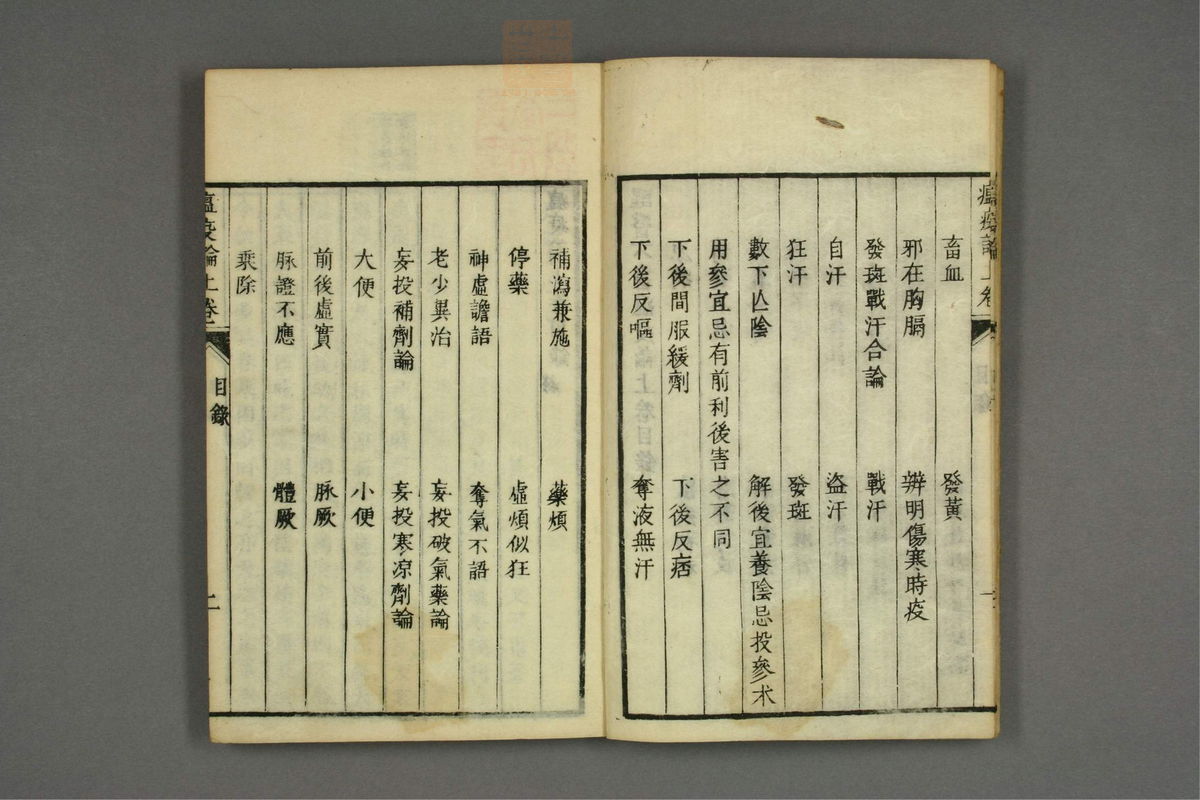 瘟疫論上卷
畜血 發黃
邪在胸膈 辨明傷寒時疫
發斑戰汗合論 戰汗
自汗 盜汗
狂汗 發斑
數下亾陰 解後宜養陰忌投參朮
用參宜忌有前利後害之不同
下後間服緩劑 下後反痞
下後反嘔 奪液無汗
補瀉兼施 藥煩
停藥 虛煩似狂
神虛譫語 奪氣不語
老少異治 妄投破氣藥論
妄投補劑論 妄投寒凉劑論
大便 小便
前後虛實 脉厥
脉證不應 體厥
乘除
瘟疫論上卷 目錄 二